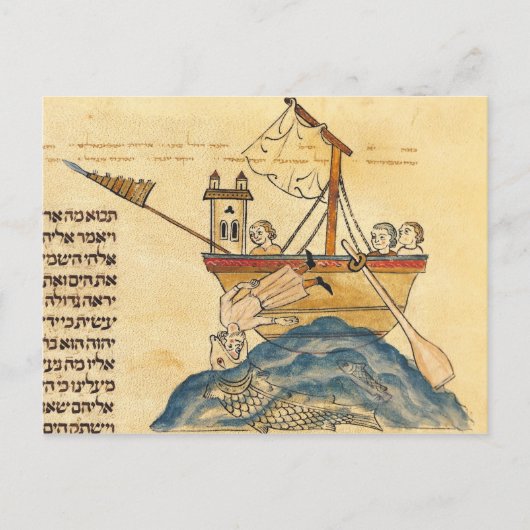 תבוא מה אר
ויאמר אליה
אלהי השמי
את הים ואת
יראה גדולה
עשית כי ידי
יהוה הוא בר
אליו מה נע
מעלינו כי ה
אליהם שאו
וישתק הים